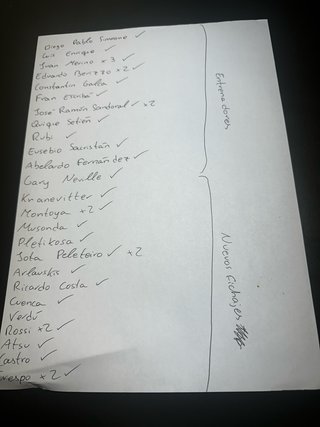 Diego Pablo Simeone ✓
Luis Enrique ✓
Juan Merino x 3 ✓
Eduardo Berizzo x 2 ✓
Constantin Galca ✓
Fran Escribá ✓
José Ramón Sandoval ✓ x2
Quique Setién ✓
Rubi ✓
Eusebio Sacristán ✓
Abelardo Fernández ✓
Gary Neville ✓
Entrenadores
Kranevitter ✓
Montoya x2 ✓
Musonda ✓
Pletikosa ✓
Jota Peleteiro ✓ x2
Arlauskis ✓
Ricardo Costa ✓
Cuenca ✓
Verdú ✓
Rossi x2 ✓
Atsu ✓
Castro ✓
Crespo x 2 ✓
Nuevos Fichajes